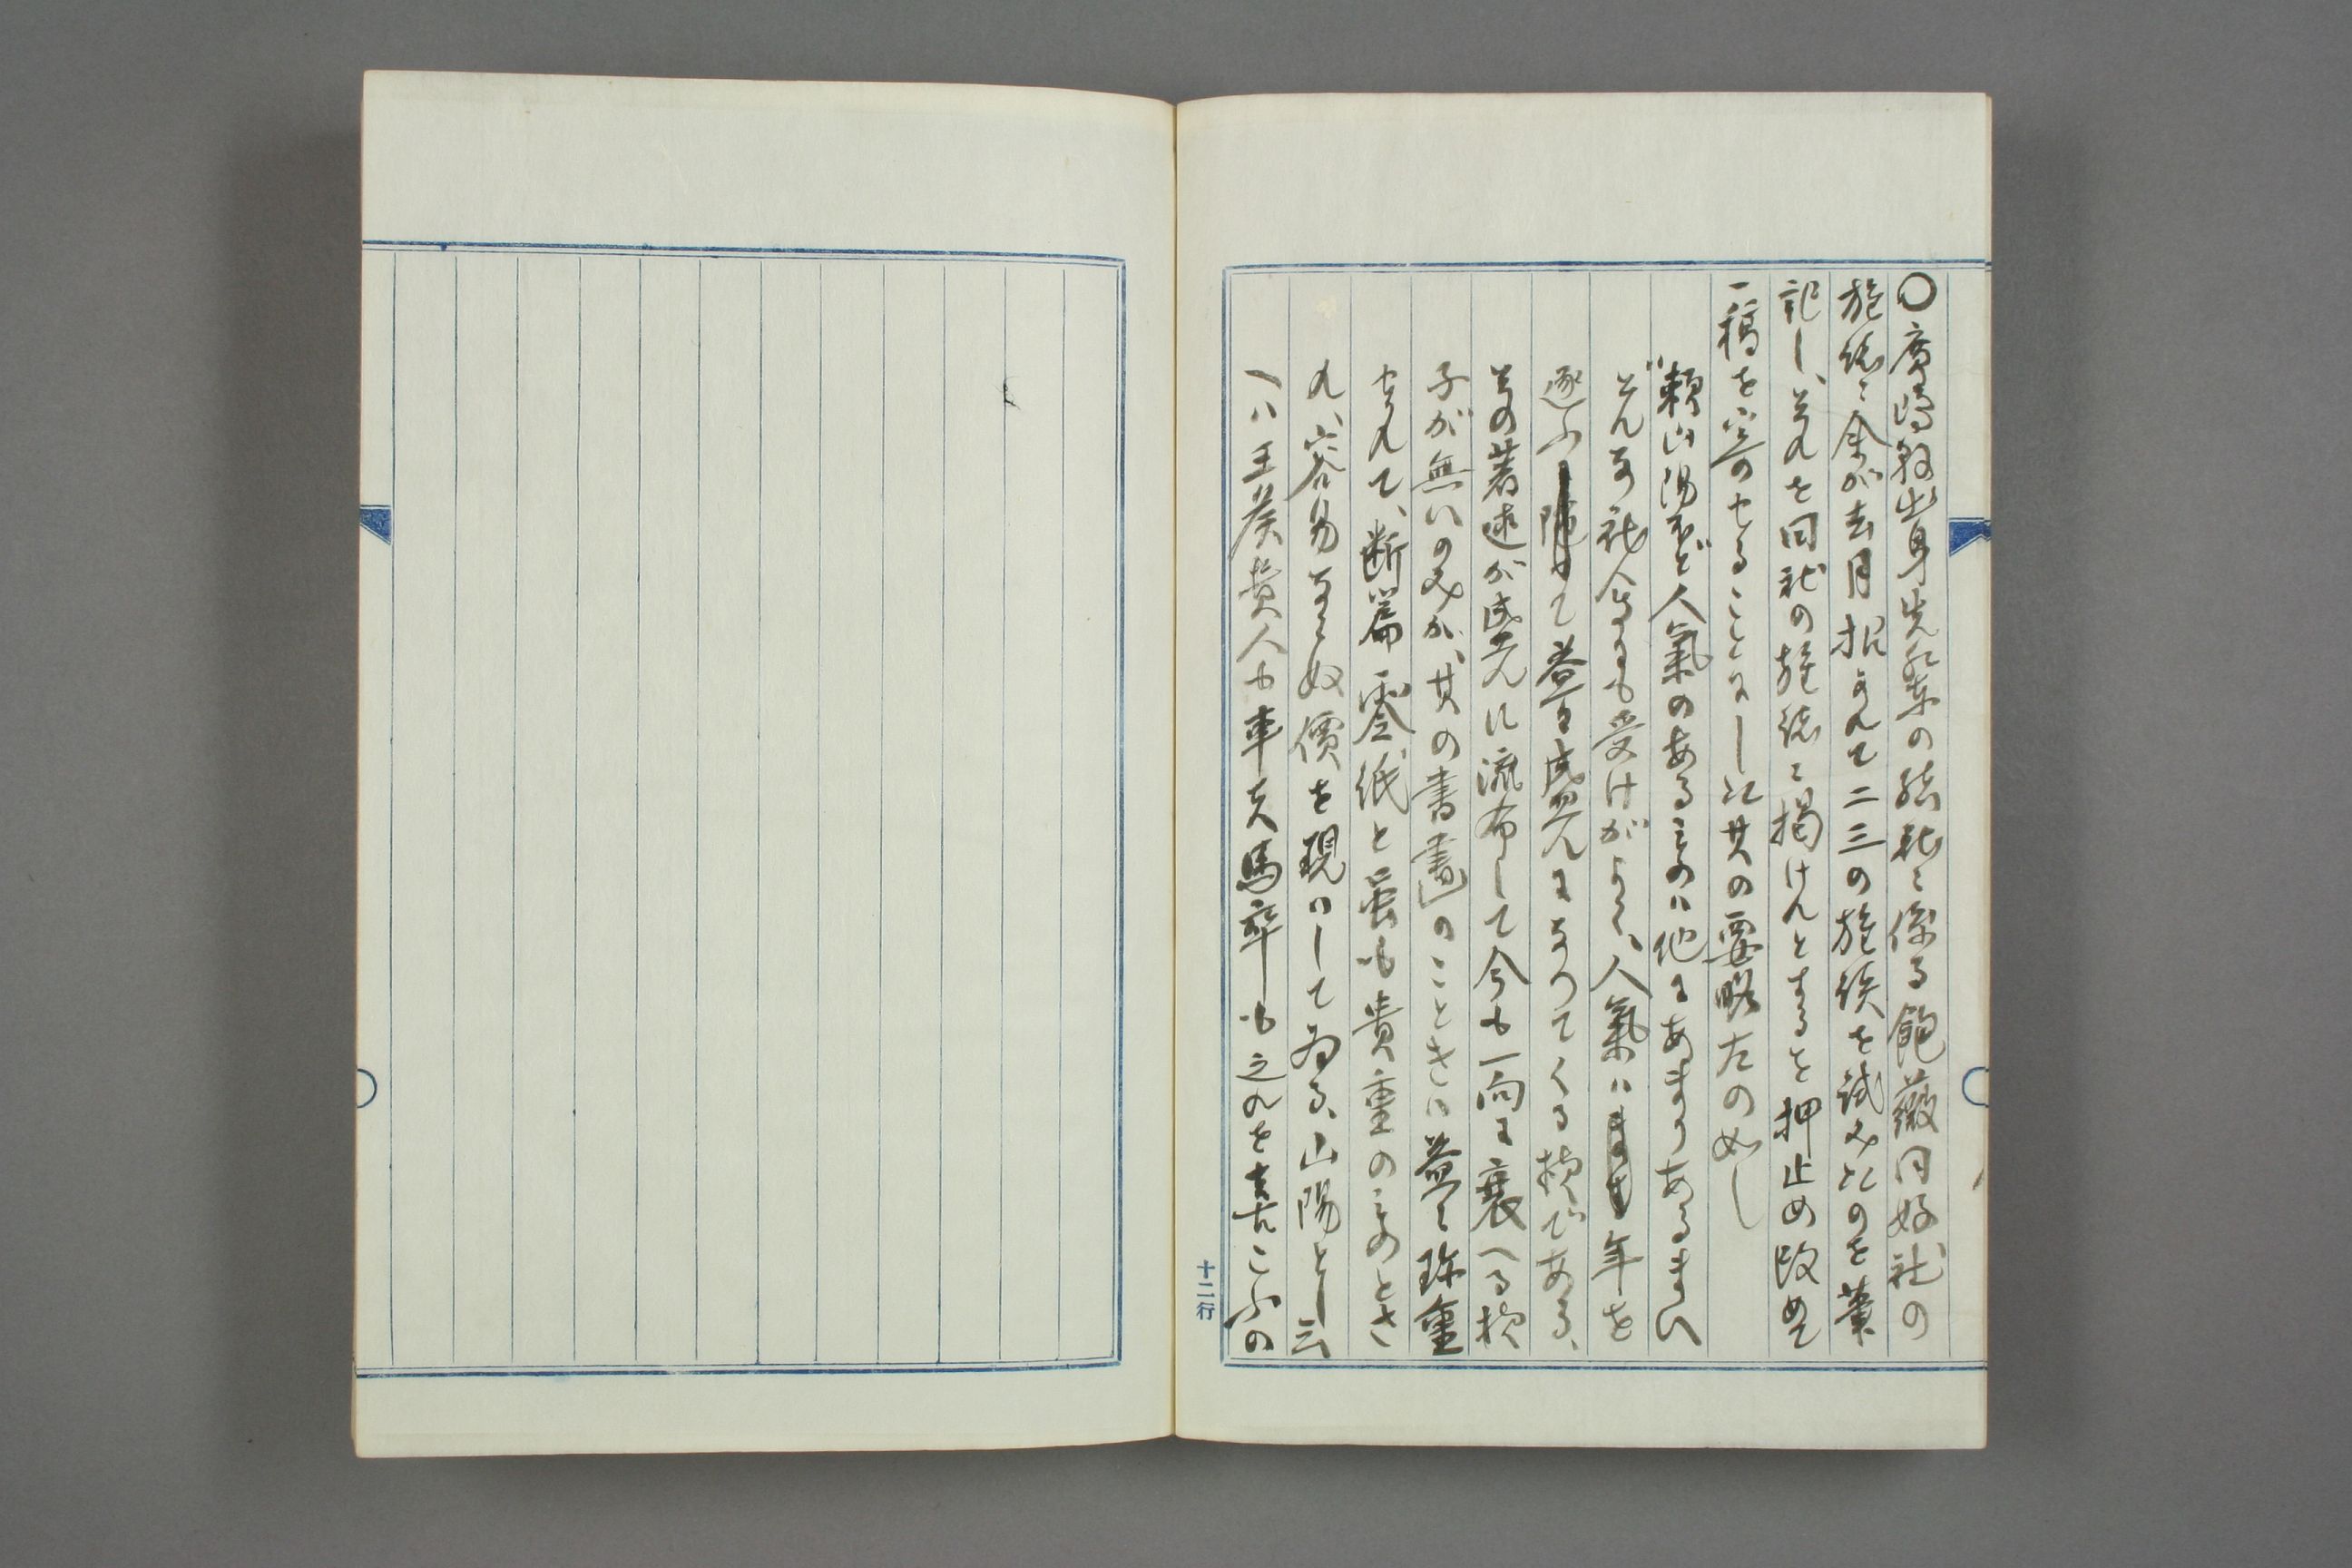 〇廣島縣出身先輩の結社に係る飽薇同好社の
旅談に余が去月招かれて二三の旅談を試みたのを筆
記し、それを同社の雜誌に掲けんとするを押止め改めて
一稿を寄のせることにした其の要略左の如し
頼山陽ほど人氣のあるものは他にあまりあるまい
どんな社會にも受けがよく、人氣は年を
逐ふて益々盛んになつてくる樣である、
其の著述が盛んに流布して今も一向に衰へる樣
子が無いのみか、其の書畫のことさは益々珍重
せられて、断篇零紙と雖も貴重のものとさ
れ、容易ならぬ價を現はしてゐる、山陽とし云
へは王侯貴人も車夫馬卒も之れを喜こふの
十二行